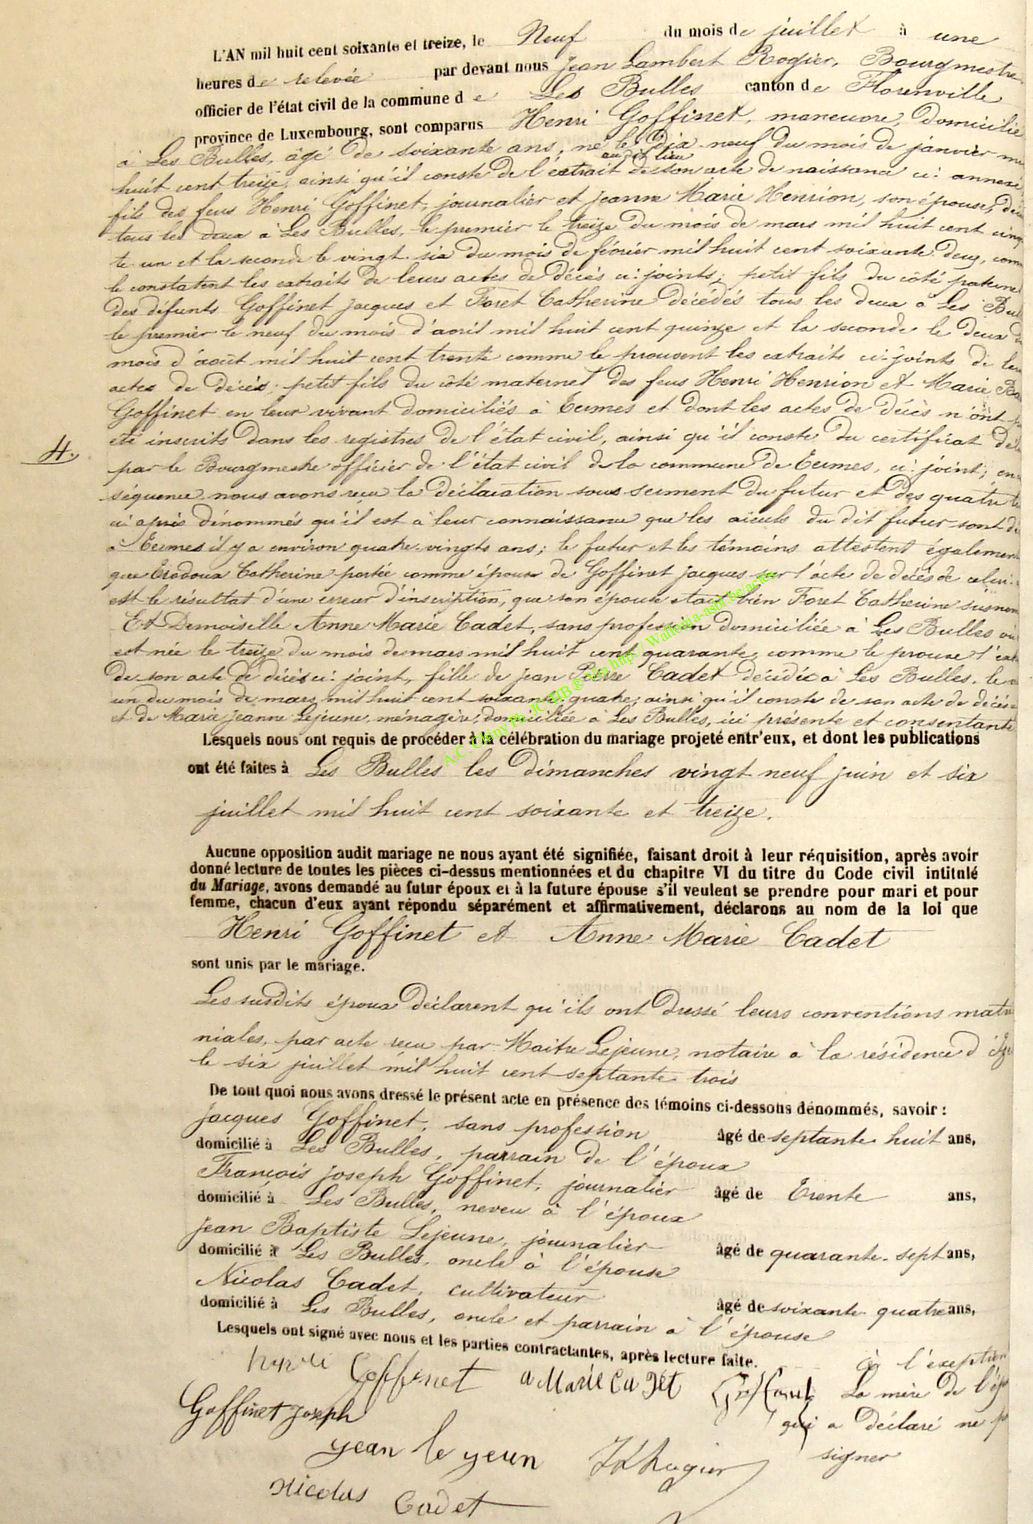 L'AN mil huit cent soixante et treize, le Neuf du mois de juillet à une
heures de relevée par devant nous Jean Lambert Rogier, Bourgmestre
officier de l'état civil de la commune de Les Bulles canton de Florenville
province de Luxembourg, sont comparus Henri Goffinet, manœuvre, domicilié
à Les Bulles, âgé de soixante ans, né le Dix-neuf du mois de janvier mil
au dit lieu
huit cent treize, ainsi qu'il conste de l'extrait de son acte de naissance ci-annexé
fils des feus Henri Goffinet, journalier et Jeanne Marie Henrion, son épouse,
tous les deux à Les Bulles, le premier le treize du mois de mars mil huit cent cinq
te un et la seconde le vingt-six du mois de février mil huit cent soixante deux, com
le constatent les extraits de leurs actes de décès ci-joints; petit fils du côté paterne
des défunts Goffinet Jacques et Foret Catherine décédés tous les deux à Les Bul
le premier le neuf du mois d'avril mil huit cent quinze et la seconde le deux
mois d'août mil huit cent trente comme le prouvent les extraits ci-joints de leu
actes de décès. petit fils du côté maternel des feus Henri Henrion et Marie
Goffinet en leur vivant domiciliés à Termes et dont les actes de décès n'ont
été inscrits dans les registres de l'état civil, ainsi qu'il conste du certificat de
4.
par le Bourgmestre officier de l'état civil de la commune de Termes, ci-joint; en
séquence nous avons reçu la déclaration sous serment du futur et des quatre
ci-après dénommés qu'il est à leur connaissance que les aïeuls du dit futur sont
à Termes il y a environ quatre-vingts ans; le futur et les témoins attestent égalemen
que Erodoux Catherine portée comme épouse de Goffinet Jacques sur l'acte de décès de celui-
est le résultat d'une erreur d'inscription, que son épouse était bien Foret Catherine susnom
Et Demoiselle Anne Marie Cadet, sans profession domiciliée à Les Bulles où
est née le treize du mois de mars mil huit cent quarante, comme le prouve l'ext
de son acte de décès ci-joint, fille de Jean Pierre Cadet décédé à Les Bulles, le
un du mois de mars mil huit cent soixante quatre, ainsi qu'il conste de son acte de décès
et de Marie Jeanne Lejeune, ménagère, domiciliée à Les Bulles, ici présente et consentante
Lesquels nous ont requis de procéder à la célébration du mariage projeté entr'eux, et dont les publications
ont été faites à Les Bulles les dimanches vingt neuf juin et six
juillet mil huit cent soixante et treize.
Aucune opposition audit mariage ne nous ayant été signifiée, faisant droit à leur réquisition, après avoir
donné lecture de toutes les pièces ci-dessus mentionnées et du chapitre VI du titre du Code civil intitulé
du Mariage, avons demandé au futur époux et à la future épouse s'il veulent se prendre pour mari et pour
femme, chacun d'eux ayant répondu séparément et affirmativement, déclarons au nom de la loi que
Henri Goffinet et Anne Marie Cadet
sont unis par le mariage.
Les susdits époux déclarent qu'ils ont dressé leurs conventions matri
niales, par acte reçu par Maitre Lejeune, notaire à la résidence d
le six juillet mil huit cent septante trois
De tout quoi nous avons dressé le présent acte en présence des témoins ci-dessous dénommés, savoir :
Jacques Goffinet, sans profession, âgé de septante huit ans,
domicilié à Les Bulles, parrain de l'époux
François Joseph Goffinet, journalier âgé de Trente ans,
domicilié à Les Bulles, neveu à l'époux
Jean Baptiste Lejeune, journalier âgé de quarante-sept ans,
domicilié à Les Bulles, oncle à l'épouse
Nicolas Cadet, cultivateur âgé de soixante quatre ans,
domicilié à Les Bulles, oncle et parrain à l'épouse
Lesquels ont signé avec nous et les parties contractantes, après lecture faite. à l'exeption
Goffinet a Marie Cadet La mère de l'ép
Goffinet joseph qui a déclaré ne
jean le yeun signer
nicolas Cadet